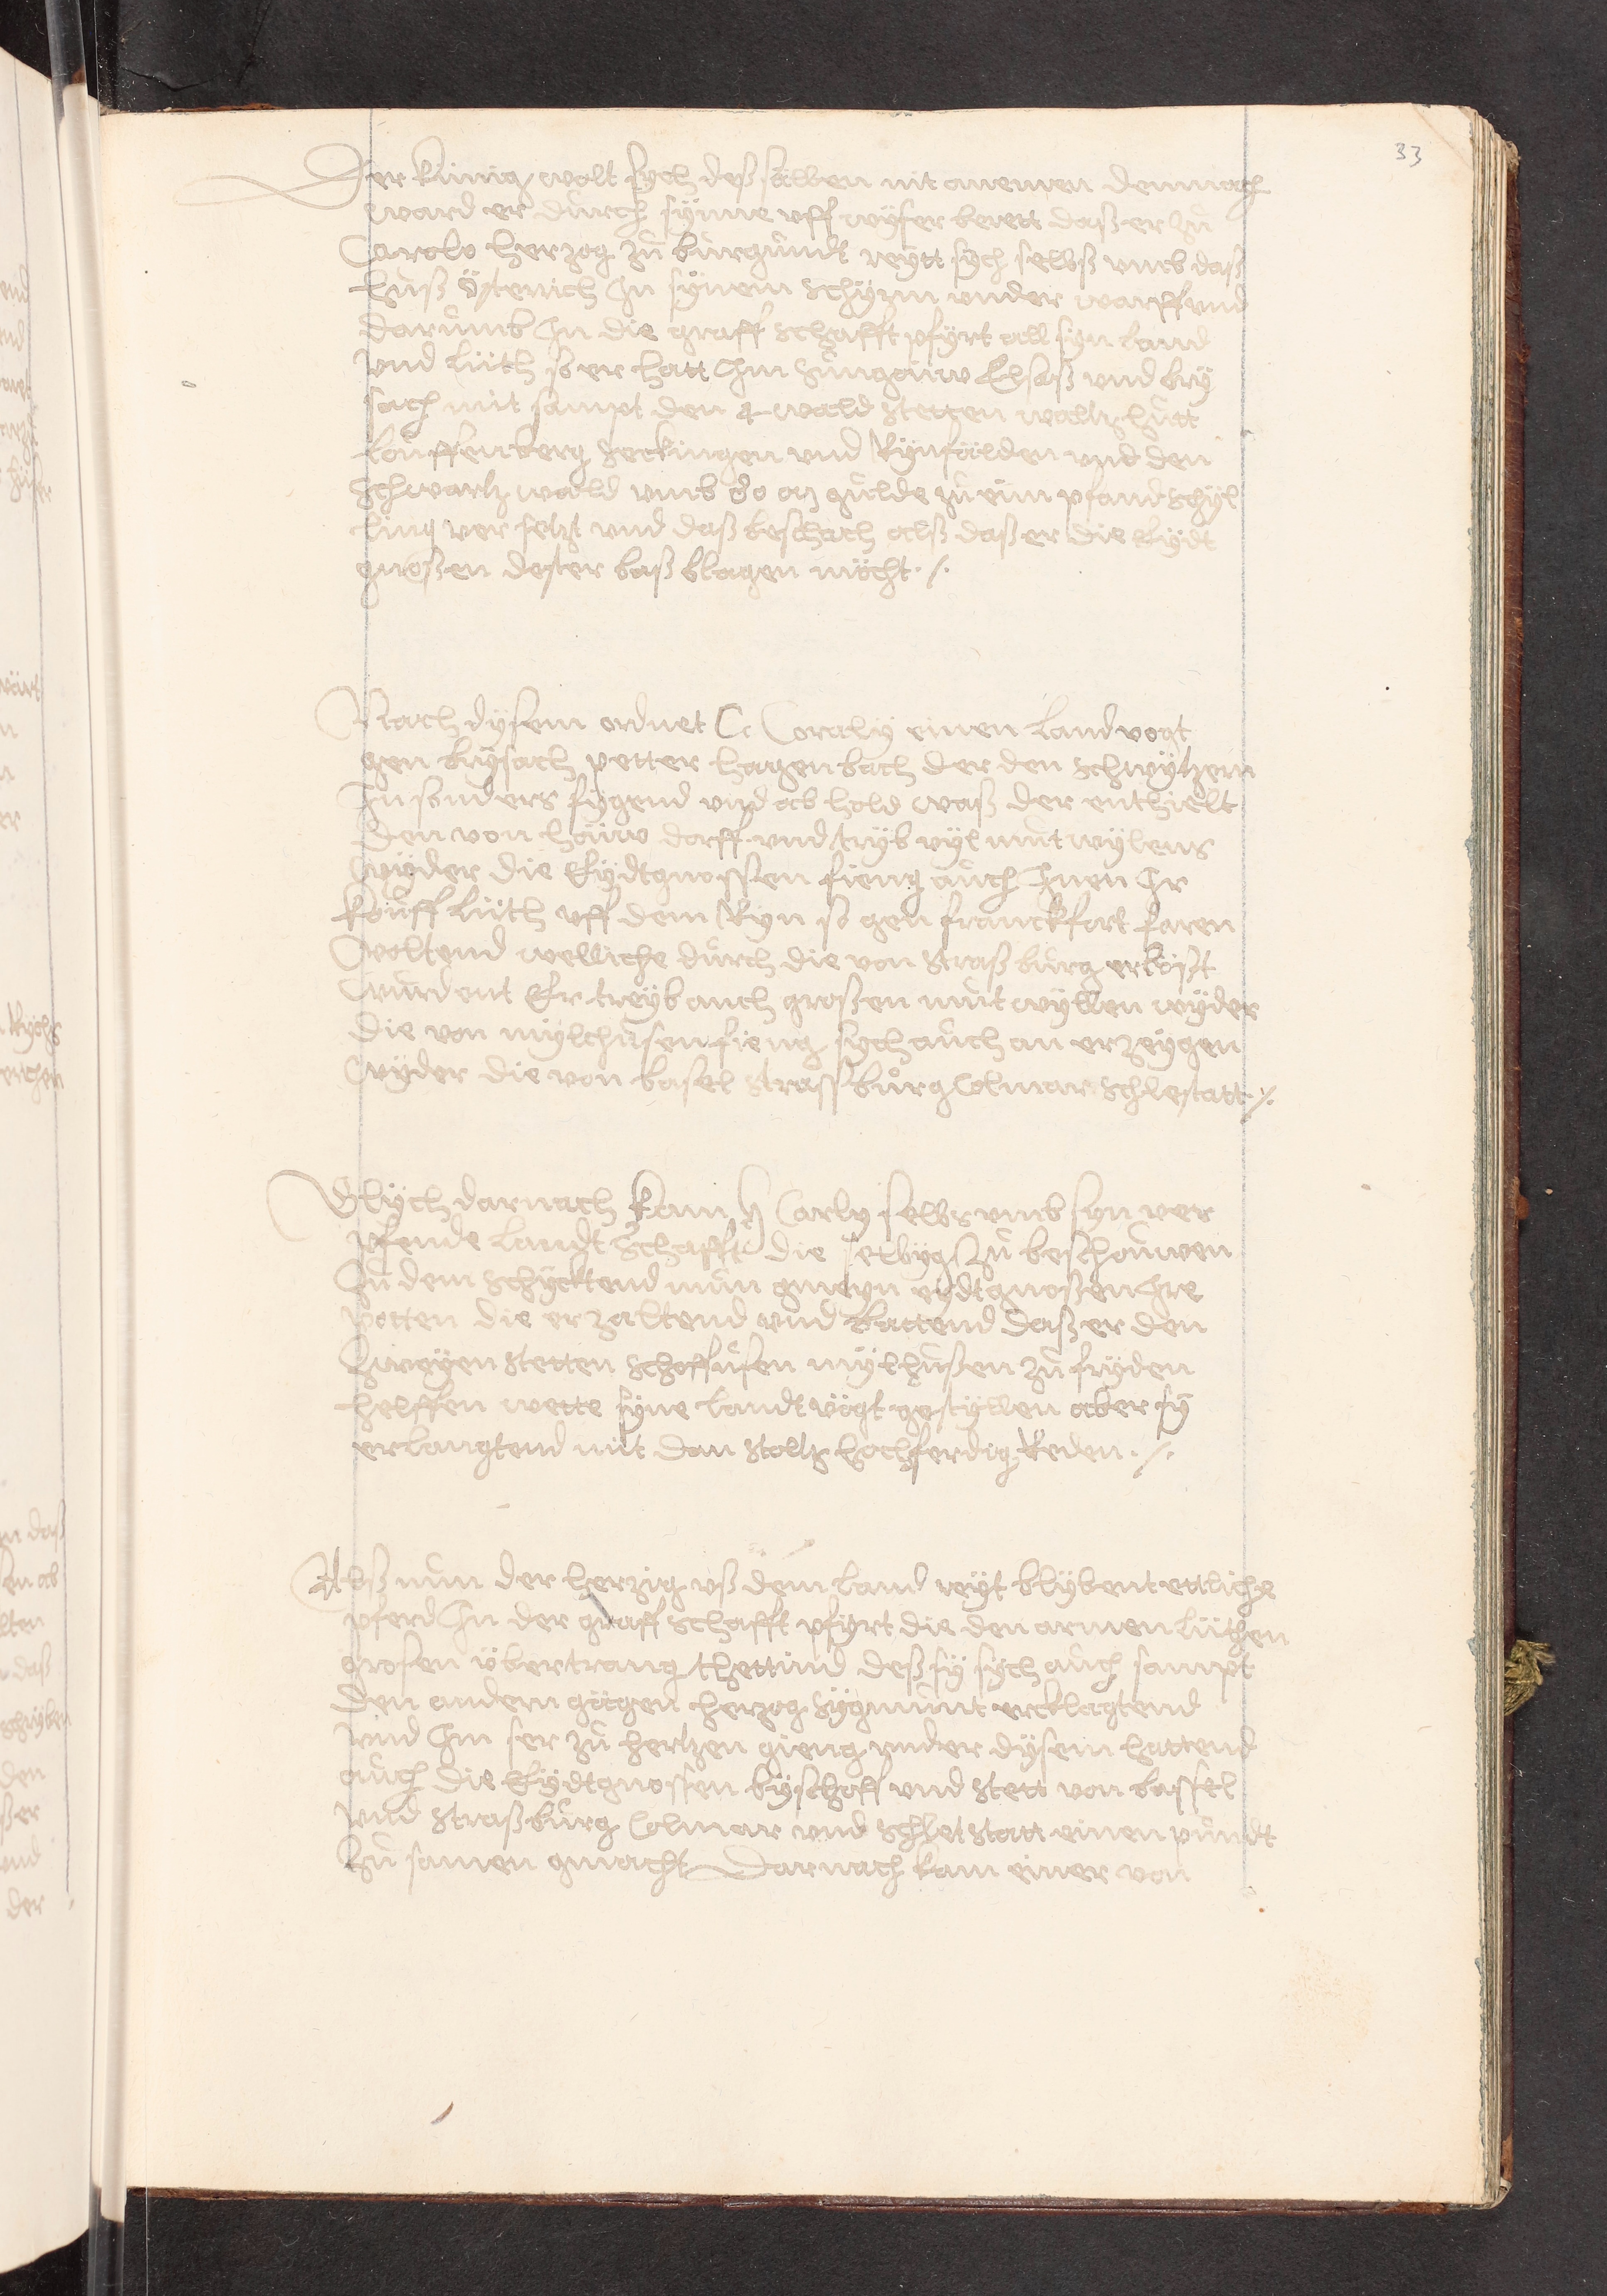 33
Der künig wolt sych deß sälben nit anemen demnach
ward er durch synne uff wyser berett daß er zů
Carolo herzog zů burgundt reytt sych selbs umb daß
huß Östenrich In synem schyrm under warff und
darumb In die graff schafft pfyrt all syn land
und lüth so er hatt Im Sungöuw Elsaß und bry
sach mit sampt den 4 wald stetten waltz hutt
Louffenberg seckingen und Rynfälden und den
schwartz wald umb 80 m gulde zů eim pfand schyl
ling ver setzt und daß beschach alß daß er die Eydt
gnossen dester baß blagen möcht ./.
Nach dysem ordnet Caroly einen Landvogt
gen brysach petter hagenbach der den schwytzern
In sonders fygend und ab hold waß der enthielt
den von höuw darff und tryb vyl mutwylens
wyder die Eydtgnossen fieng auch Inen Ir
kouff lüth uff dem Ryn so gen franckfort faren
woltend welliche durch die von straßburg erlößt
wurdent Er treyb auch großen mutwyllen wyder
die von mylchusen fieng sych auch an erzeygen
wyder die von basel strassburg Colmar schlestatt ./.
Glych darnach kam h Carly selbs umb syn ver
pfende landtschafft die selbyg zů beschouwen
Zů dem schycktend nun gmeyn eydtgnossen Ire
potten die erzaltend und battend daß er den
zweyen stetten schoffusen mylhußen zů fryden
helffen wette syne landtvögt gestyllen aber sy
erlangtend nüt dan stoltz hochferdig Reden ./.
Alß nun der herzig uß dem land reyt blybent ettliche
pferd In der graffschafft pfyrt die den armen lüthen
grosen übertrang thettind deß sy sych auch sampt
den andern gägen herzog sygmunt ercklagtend
und Im ser zů hertzen gieng under dysem hattend
auch die Eydtgnossen byschoff und stett von bassel
und straßburg Colmar und schletstatt einen pundt
zů samen gmacht Darnach kam einer von